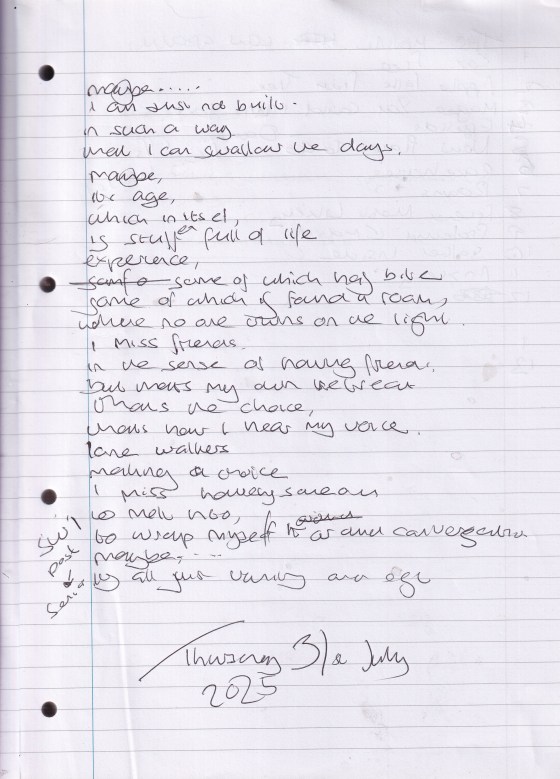 maybe.....
I am just not built.
in such a way
that I can swallow the days.
maybe,
its age,
which in itself,
is stuffen full of life
experience,
some of which has bite
some of which is found a room,
where no one turns on the light.
I miss friends.
in the sense of having friends.
but thats my own retreat
thats the choice,
thats how I hear my voice.
lone walkers
making a choice
I miss having someone
to melt into,
to wrap myself in conversation
maybe,....
its all just vanity and ego
post
Thursday 31st July
2025